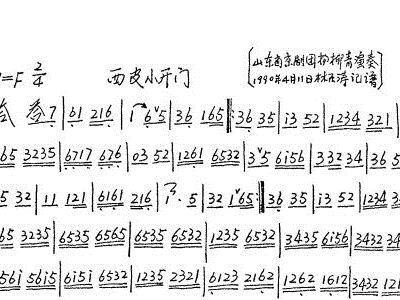 =F 2/4 西皮小开门
山东省京剧团杨柳青演奏
1990年4月11日林
记谱
7 | 61 216 | 1 6 5 | 36 165 :‖: 36 35 | i3 52 | 1234 321 |
65 3235 | 6717 676 | 03 52 | 1261 6532 | 3 5 6i56 | 3332 34 | 36 5
5 32 | 11 121 | 6161 216 | 1 · 5 | 32 1 65 :‖: 36 35 | i3 52 | 1234 3
65 3235 | 6535 6565 | 6535 6532 | 1235 6532 | 3435 6i56 | 3432 34
56i 56i5 | 6i5i 6532 | 1235 2321 | 6123 2162 | 1262 1612 | 3432 121